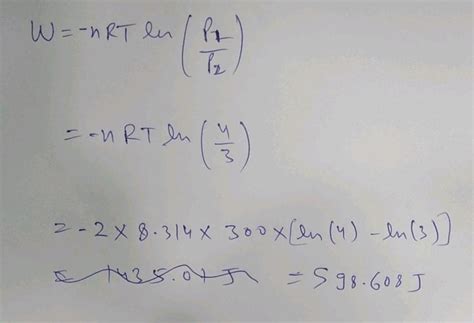 W = -nRT ln (P1/P2)
= -nRT ln (4/3)
= -2 × 8.314 × 300 × [ln(4) - ln(3)]
= 1435.01 J = 598.608 J